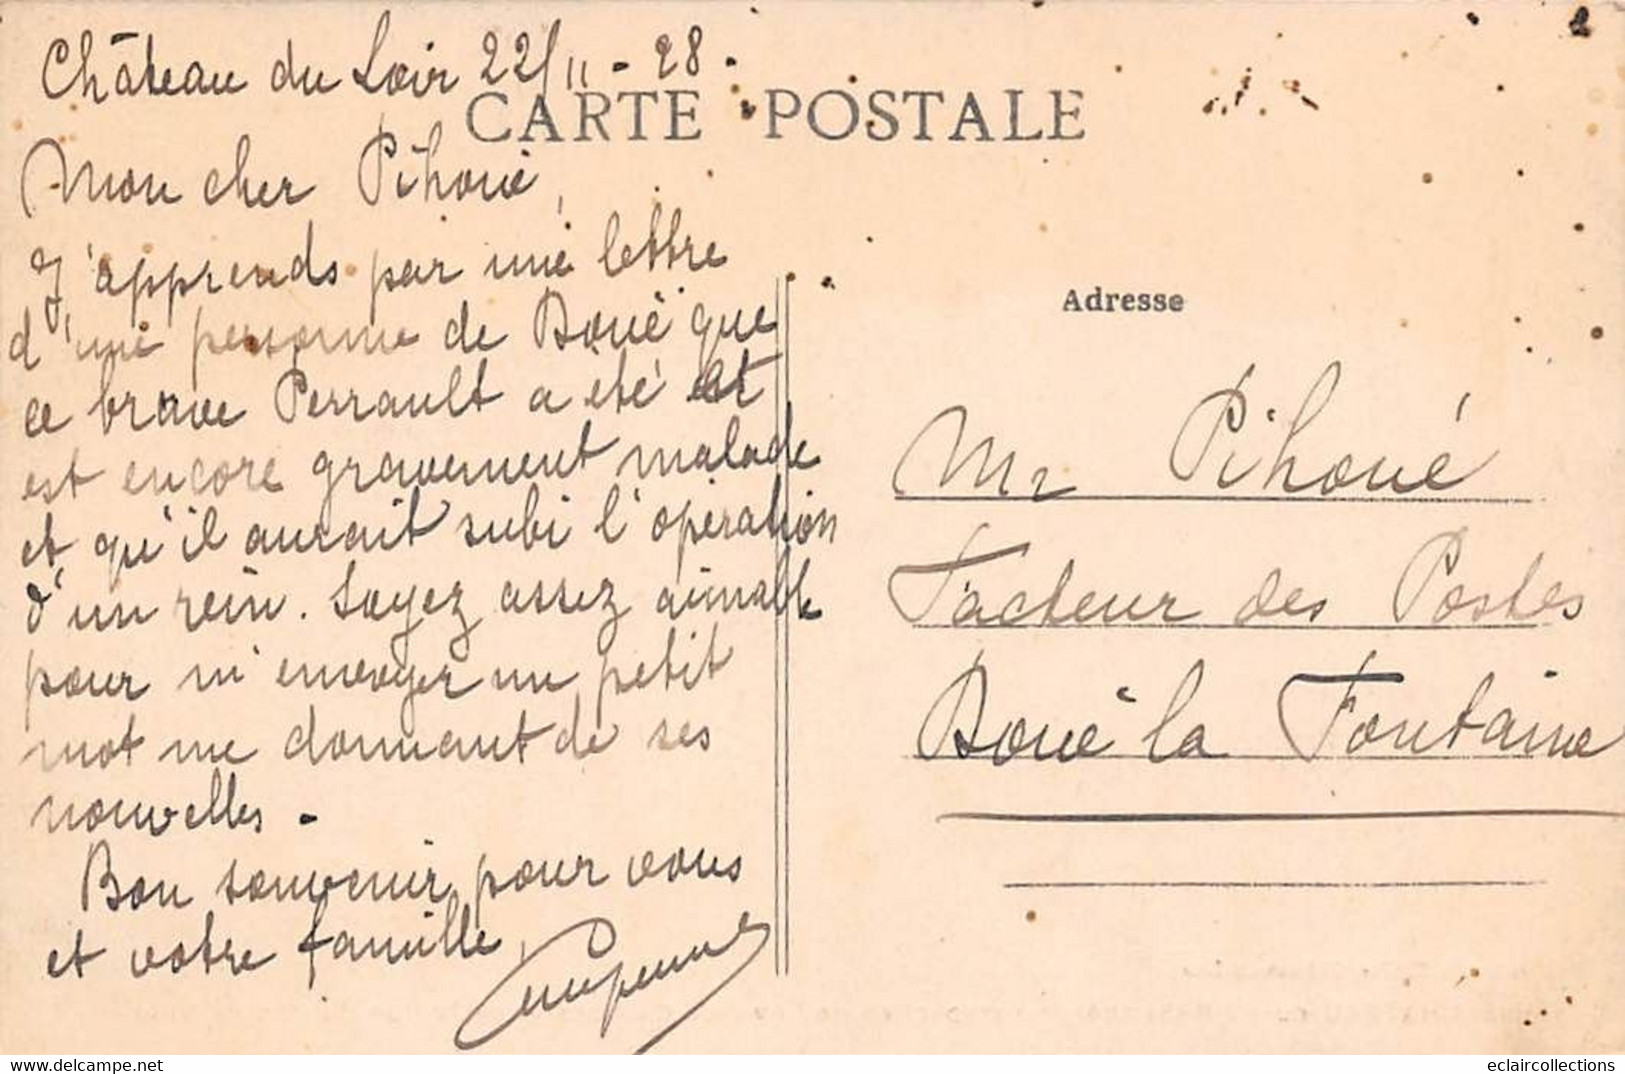 Château du Loir 22/11-28.
CARTE POSTALE
Mon cher Pihoué,
J'apprends par une lettre
d'une personne de Doué que
ce brave Perrault a été et
est encore gravement malade
et qu'il aurait subi l'opération
d'un rein. Soyez assez aimable
pour m'envoyer un petit
mot me donnant de ses
nouvelles.
Bon souvenir pour vous
et votre famille,
Adresse
Mr Pihoué
Facteur des Postes
Doué la Fontaine
eclaircollections